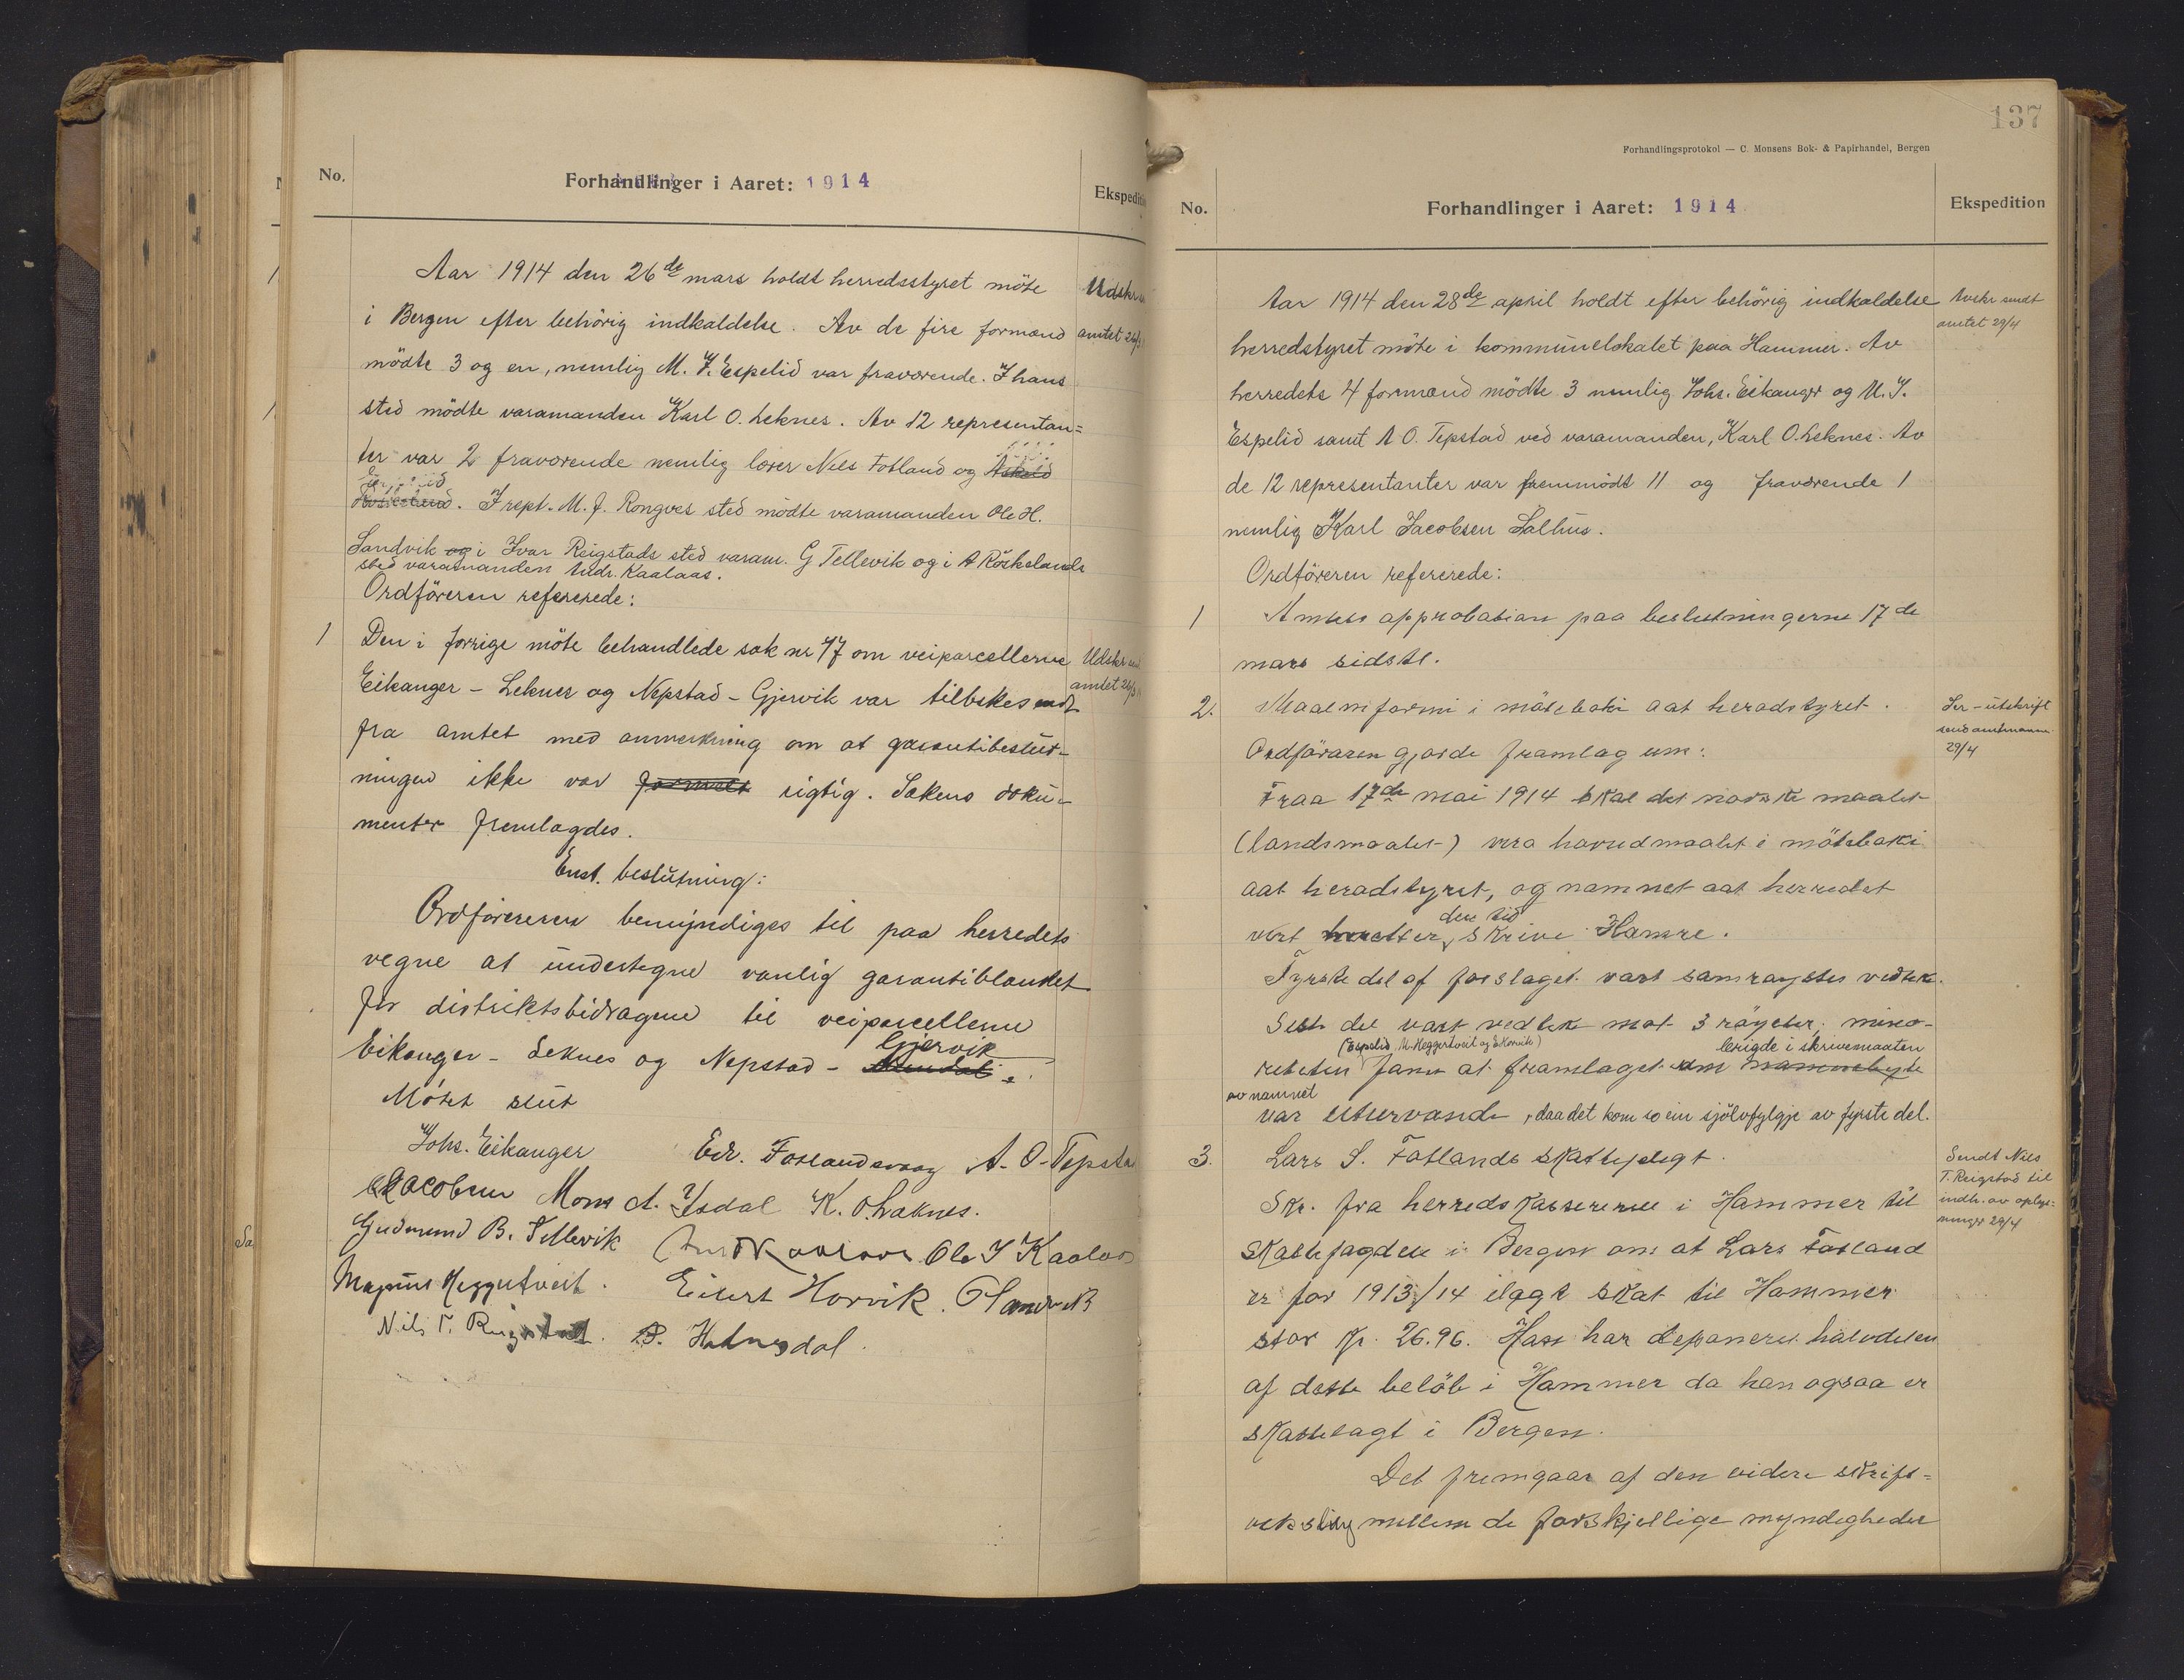 No.
Forhandlinger i Aaret: 1914
Ekspedition
Aar 1914 den 26de mars holdt herredsstyret möte
i Bergen efter behörig indkaldelse. Av de fire formænd
mödte 3 og en, nemlig M. J. Espelid var fraværende. I hans
sted mödte varamanden Karl O. Leknes. Av 12 representan=
ter var 2 fraværende nemlig lærer Nils Fosland og Askeld
. I rept. M. J. Rongves sted mödte varamanden Ole H.
Sandvik og i Ivar Reigstads sted varam. G Tellevik og i A Röskelands
sted varamanden Andr. Kaalaas.
Ordföreren refererede:
1 Den i forrige möte behandlede sak nr 47 om veiparcellerne
Eikanger – Leknes og Nepstad – Gjervik var tilbakesendt
fra amtet med anmerkning om at garantibeslut-
ningen ikke var formelt rigtig. Sakens doku-
menter fremlagdes.
Enst. beslutning:
Ordföreren bemyndiges til paa herredets
vegne at undertegne vanlig garantiblanket
for distriktsbidragene til veiparcellerne
Gjervik
Eikanger – Leknes og Nepstad –
Mötet slut
Johs. Eikanger Edr. Foslandsvaag A. O. Tepstad
Jacobsen Mons A. Isdal K. O. Leknes.
Gudmund B. Tellevik Andr Kaalaas Ole J Kaalaas
Magnus Heggertveit. Eilert Horvik. O Sandvik
Nils T. Reigstad. P. Helingsdal.
Udskr
amtet 26/3
Udskr
amtet 26/3
137
Forhandlingsprotokol — C. Monsens Bok- & Papirhandel, Bergen
No.
Forhandlinger i Aaret: 1914
Ekspedition
Aar 1914 den 28de april holdt efter behörig indkaldelse
herredstyret möte i kommunelokalet paa Hammer. Av
herredets 4 formænd mödte 3 nemlig Johs. Eikanger og M. J.
Espelid samt A O. Tepstad ved varamanden, Karl O. Leknes. Av
de 12 representanter var fremmödt 11 og fraværende 1
nemlig Karl Jacobsen Salhus.
Ordföreren refererede:
1 Amtets approbation paa beslutningerne 17de
mars sidstl.
2. Maalniformi i möteboki aat heradstyret.
Ordföraren gjorde framlag um:
Fraa 17de mai 1914 skal det norske maalet
(landsmaalet) vera hovudmaalet i möteboki
aat heradstyret, og namnet aat herredet
den tid
vert heretter skrive Hamre.
Fyrste del af forslaget vart samröystes vedtek.
Siste del vart vedteke mot 3 röyster; mino-
(Espelid, M. Heggertveit og E Horvik) brigde i skrivemaaten
riteten fann at framlaget um namnebyte
av namnet
var uturvande, daa det kom so ein sjölvfylgje av fyrste del.
3. Lars S. Foslands skatteplegt.
Skr. fra herredskassereren i Hammer til
skattefogden i Bergen om at Lars Fosland
er for 1913/14 ilagt skat til Hammer
stor kr. 26.96. Han har deponeret halvdelen
af dette belöb i Hammer da han ogsaa er
skattelagt i Bergen.
Det fremgaar af den videre skrift=
veksling mellem de forskjellige myndigheder
Avskr sendt
amtet 29/4
Sær-utskrift
send amtmannen
29/4
Sendt Nils
T. Reigstad til
indh. av oplys-
ninger 29/4